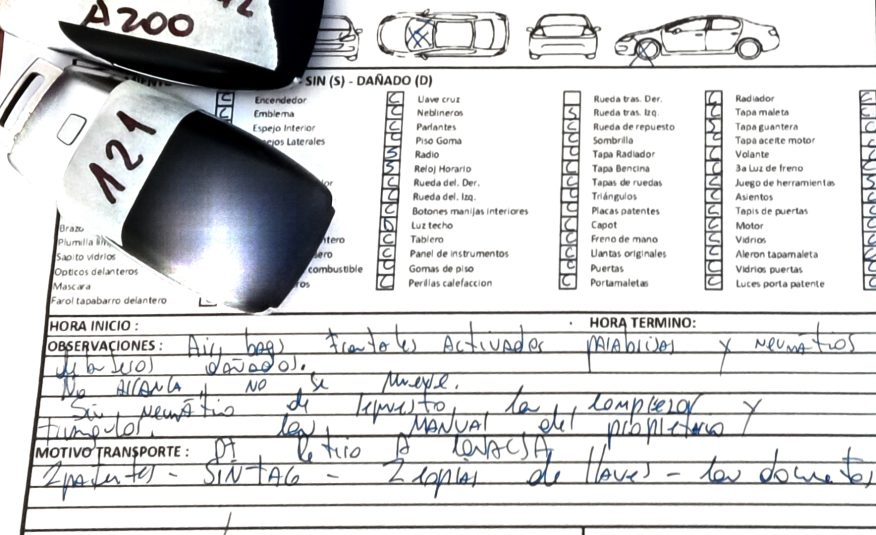 A200
121
SIN (S) - DAÑADO (D)
Encendedor C Llave cruz Rueda tras. Der. C Radiador
Emblema C Neblineros S Rueda tras. Izq. C Tapa maleta
Espejo Interior C Parlantes Rueda de repuesto S Tapa guantera
Laterales Piso Goma C Sombrilla C Tapa aceite motor
S Radio C Tapa Radiador C Volante
S Reloj Horario C Tapa Bencina C 3a Luz de freno
Rueda del. Der. C Tapas de ruedas C Juego de herramientas
Rueda del. Izq. Triángulos C Asientos
Botones manijas interiores C Placas patentes C Tapis de puertas
Brazo D Luz techo C Capot C Motor
Plumilla C Tablero C Freno de mano C Vidrios
Sapito vidrios C Panel de instrumentos C Llantas originales C Aleron tapamaleta
Opticos delanteros combustible C Gomas de piso C Puertas C Vidrios puertas
Mascara C Perillas calefaccion C Portamaletas C Luces porta patente
Farol tapabarro delantero
HORA INICIO : HORA TERMINO:
OBSERVACIONES : Air bags Frontales Activados parabrisas y neumátios
delanteros dañados.
No Arranca, no se mueve.
Sin neumático de repuesto con compresor y
triangulos. con MANUAL del propietario
MOTIVO TRANSPORTE : Retiro A
2 patentes - SIN TAG - 2 copias de llaves - con documentos